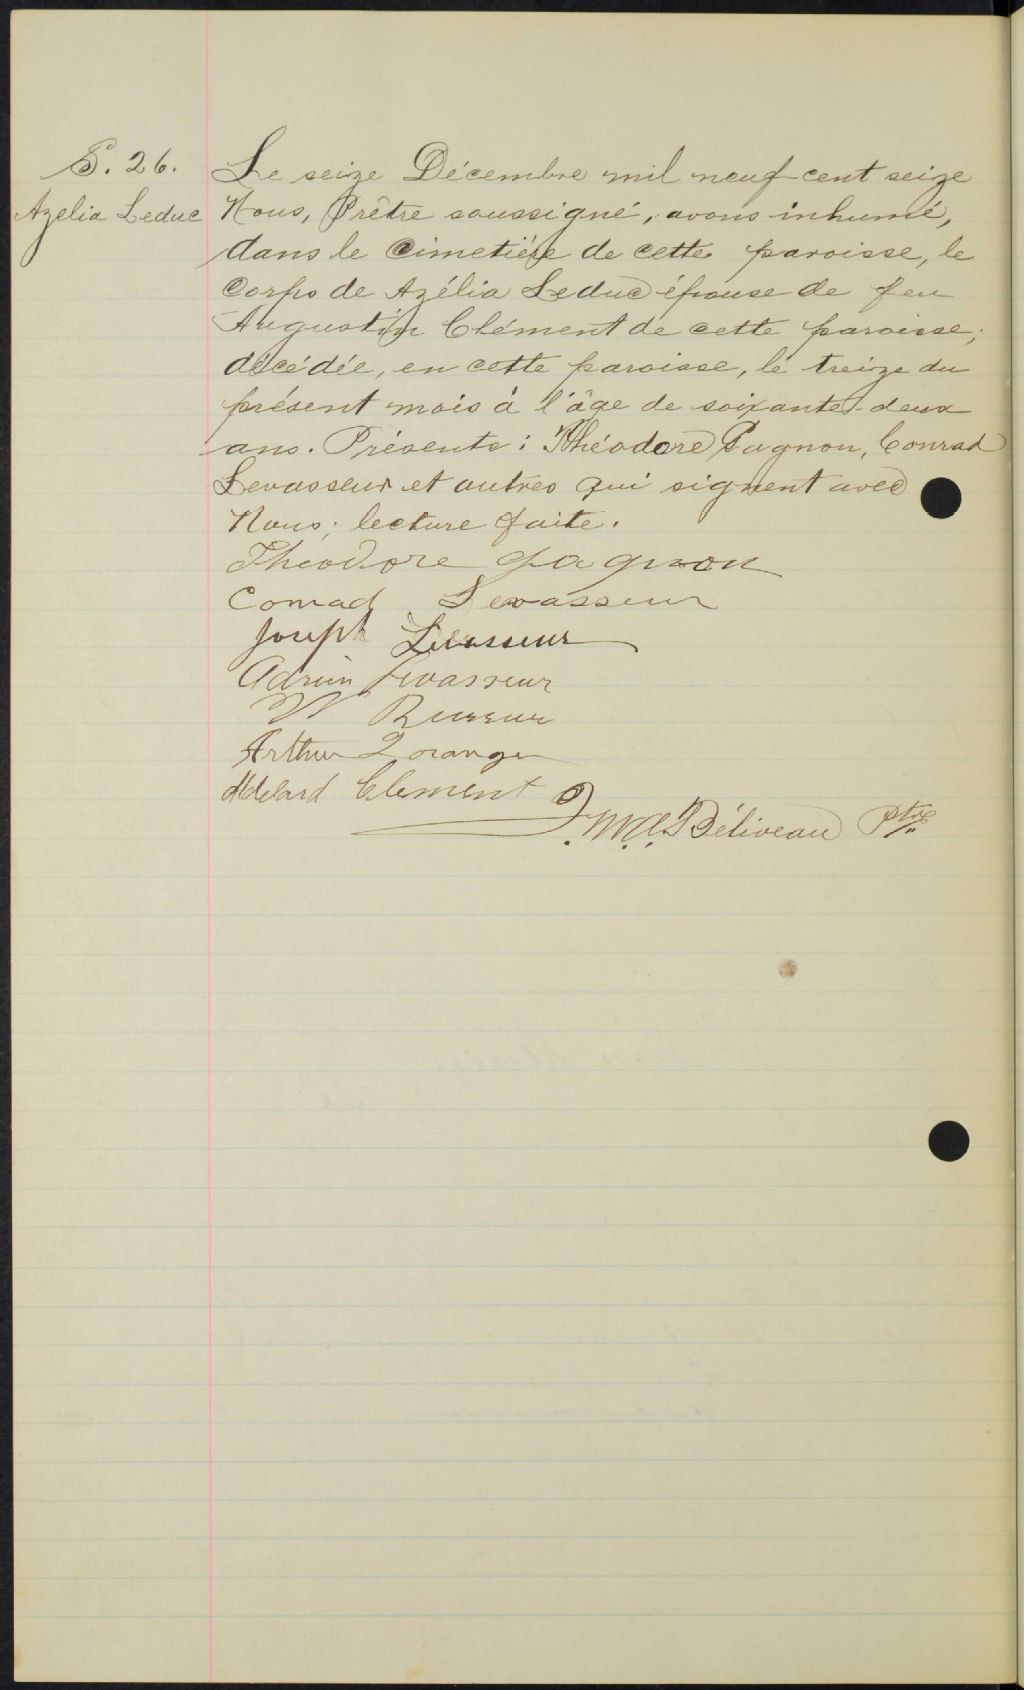 S. 26.
Azelia Leduc
Le seize Décembre mil neuf cent seize
Nous, Prêtre soussigné, avons inhumé,
dans le Cimetière de cette paroisse, le
Corps de Azélia Leduc épouse de feu
Augustin Clément de cette paroisse;
décédée, en cette paroisse, le treize du
présent mois à l'âge de soixante-deux
ans. Présents: Théodore Gagnon, Conrad
Levasseur et autres qui signent avec
Nous; lecture faite.
Theodore Gagnon
Conrad Levasseur
Joseph Levasseur
Adrien Levasseur
Arthur Loranger
Adelard Clement
J. M. A. Béliveau Ptre